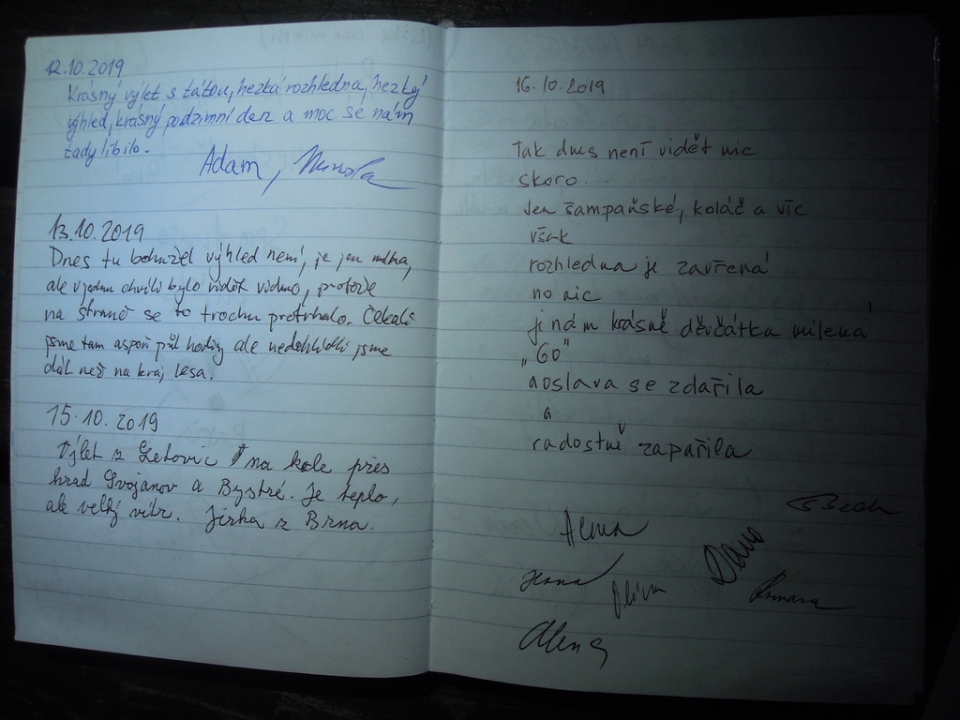 12.10.2019
Krásný výlet s tátou, hezká rozhledna, hezký
výhled, krásný podzimní den a moc se nám
tady líbilo.
Adam,
13.10.2019
Dnes tu bohužel výhled není, je jen mlha,
ale v jednu chvíli bylo vidět vidmo, protože
na straně se to trochu protrhalo. Čekali
jsme tam aspoň půl hodiny ale nedohlédli jsme
dál než na kraj lesa.
15.10.2019
Výlet z Letovic na kole přes
hrad Svojanov a Bystré. Je teplo,
ale velký vítr. Jirka z Brna.
16.10.2019
Tak dnes není vidět nic
skoro...
Jen šampaňské, koláč a víc
však
rozhledna je zavřená
no nic
je nám krásně děvčátka milená
„60"
oslava se zdařila
a
radostně zapařila
Alena
Dana
Jana
Romana
Alena